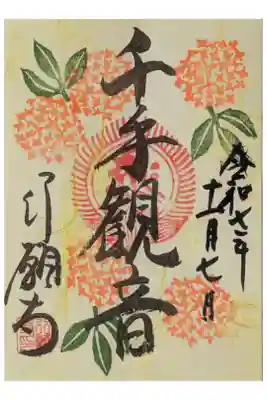 令和七年十一月七日
千手観音
行願寺